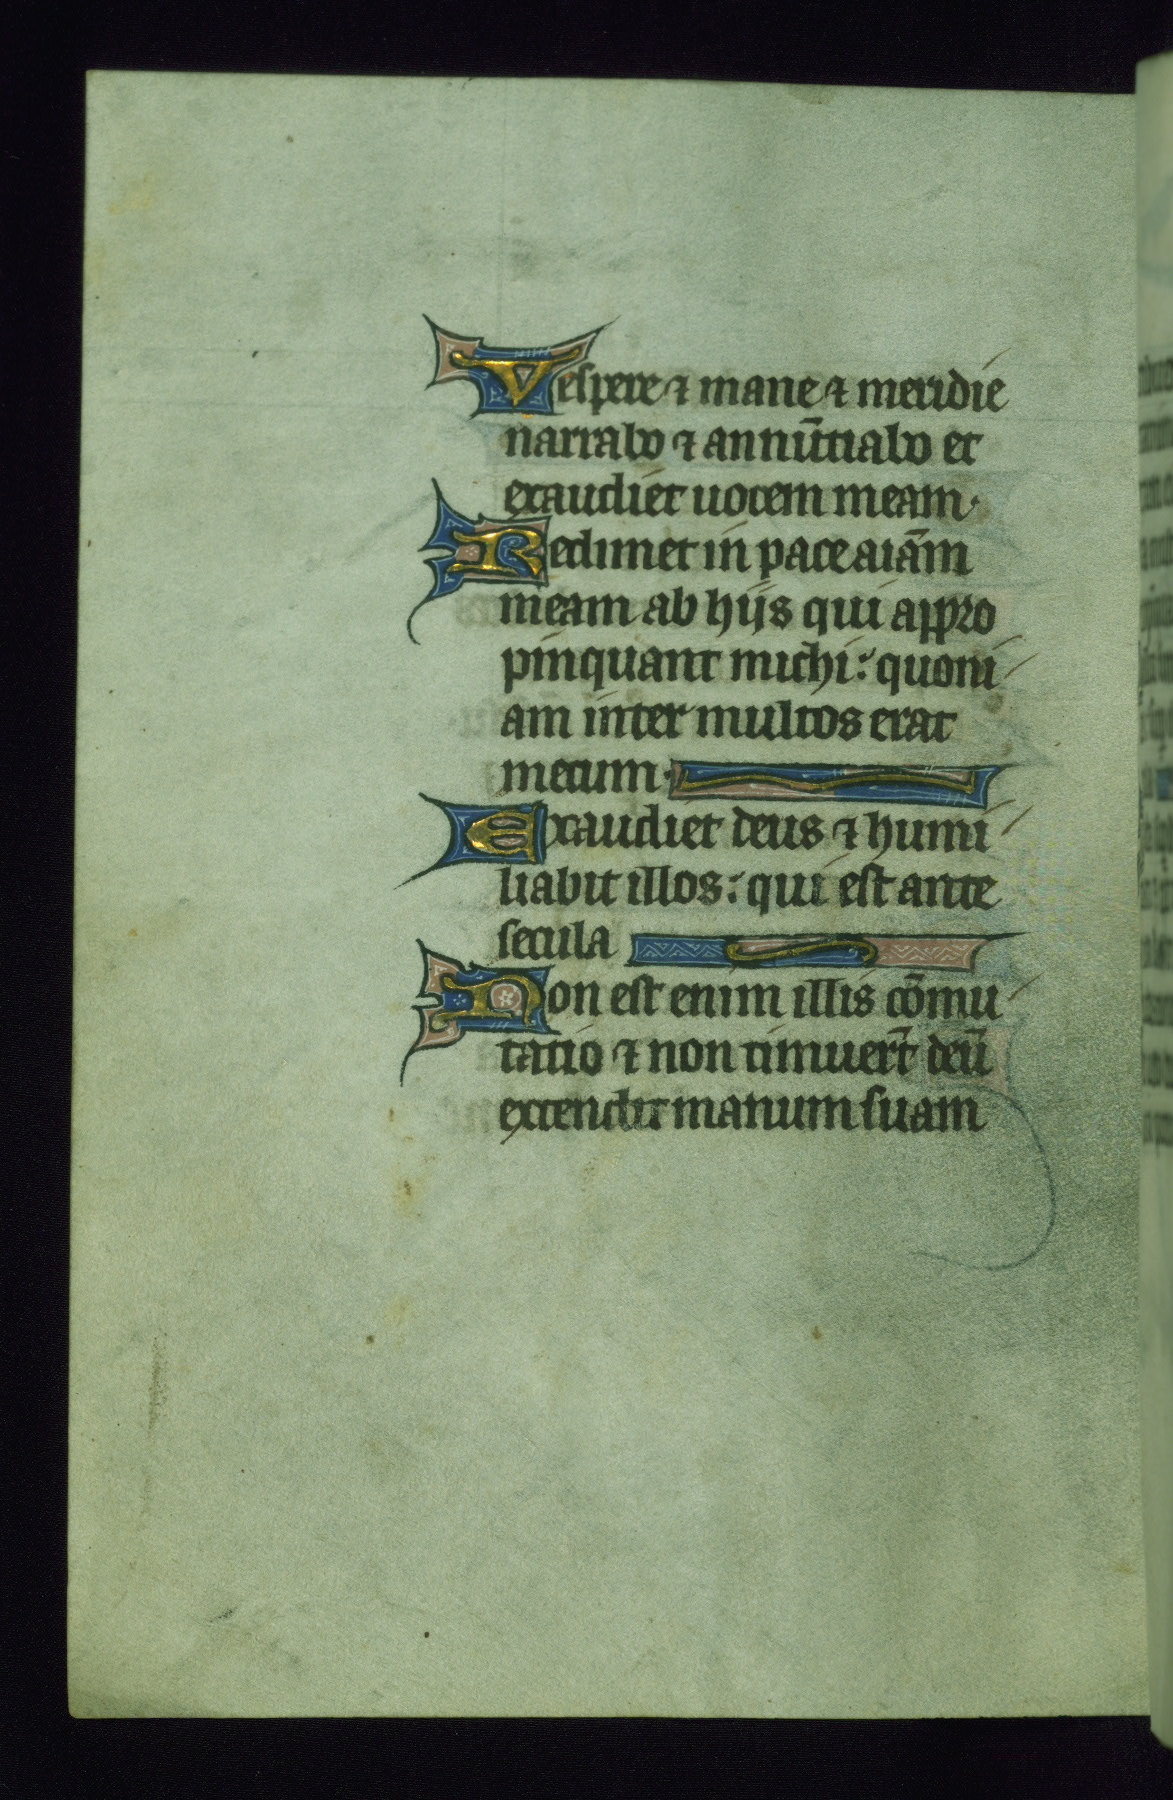 Vespere ⁊ mane ⁊ meridie
narrabo ⁊ annūtiabo et
exaudiet uocem meam.
Redimet in pace aiām
meam ab hijs qui appro
pinquant michi: quoni
am inter multos erat
mecum.
Exaudiet deus ⁊ humi
liabit illos: qui est ante
secula
Non est enim illis cōmu
tatio ⁊ non timuer̄t deū
extendit manum suam